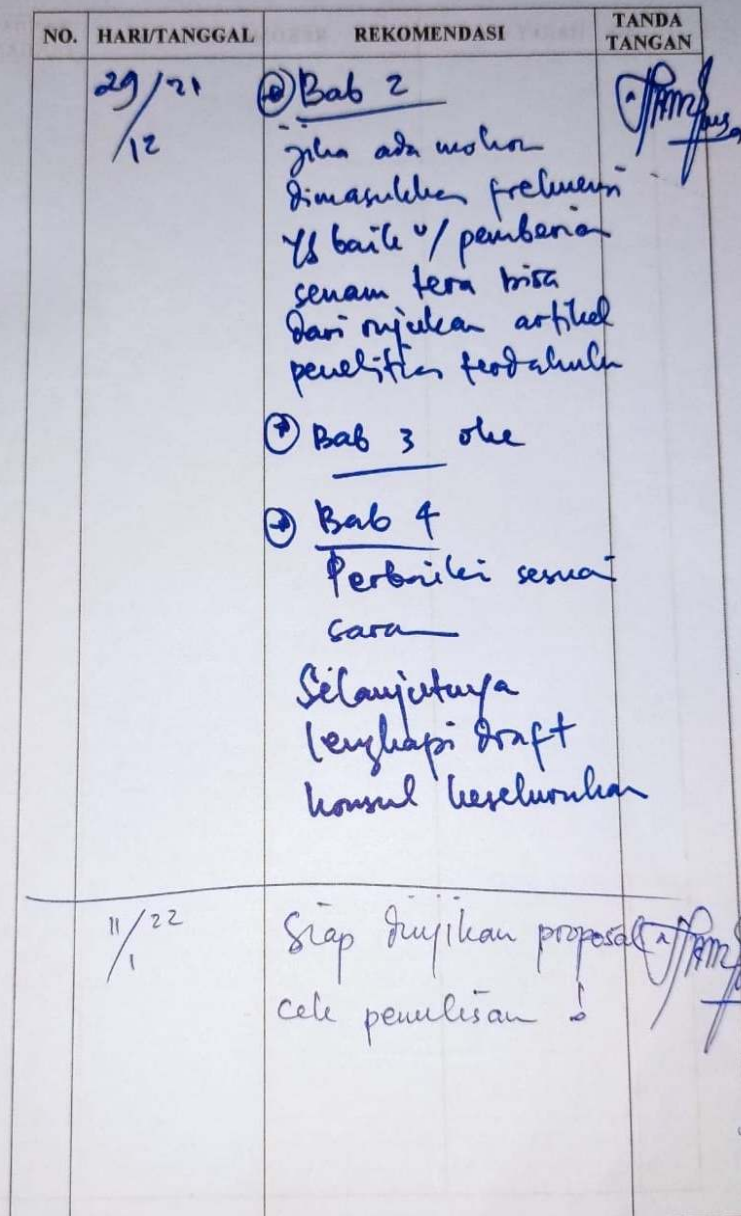 NO. HARI/TANGGAL REKOMENDASI TANDA TANGAN
29/21
/12
Bab 2
jika ada mohon
dimasukkan frekuensi
yg baik u/ pemberian
senam tera bisa
dari rujukan artikel
penelitian terdahulu
Bab 3 oke
Bab 4
Perbaiki sesuai
saran
Selanjutnya
lengkapi draft
konsul keseluruhan
11/22
/1
Siap diujikan proposal
cek penulisan !